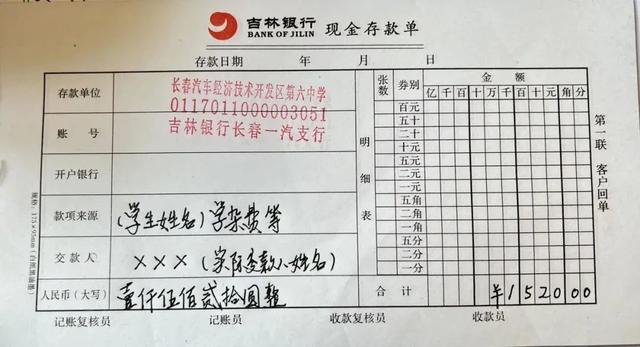 吉林银行 现金存款单
BANK OF JILIN
存款日期 年 月 日
存款单位
长春汽车经济技术开发区第六中学
账号
0117011000003051
吉林银行长春一汽支行
开户银行
款项来源
(学生姓名)学杂费等
交款人
××× (实际交款人姓名)
人民币(大写)
壹仟伍佰贰拾圆整
明细表
张数 券别 金额
亿 千 百 十 万 千 百 十 元 角 分
百元
五十
二十
十元
五元
二元
一元
五角
二角
一角
五分
二分
一分
合计 ¥152000
第一联 客户回单
规格:175×95mm(白纸黑油墨)
记账复核员 记账员 收款复核员 收款员